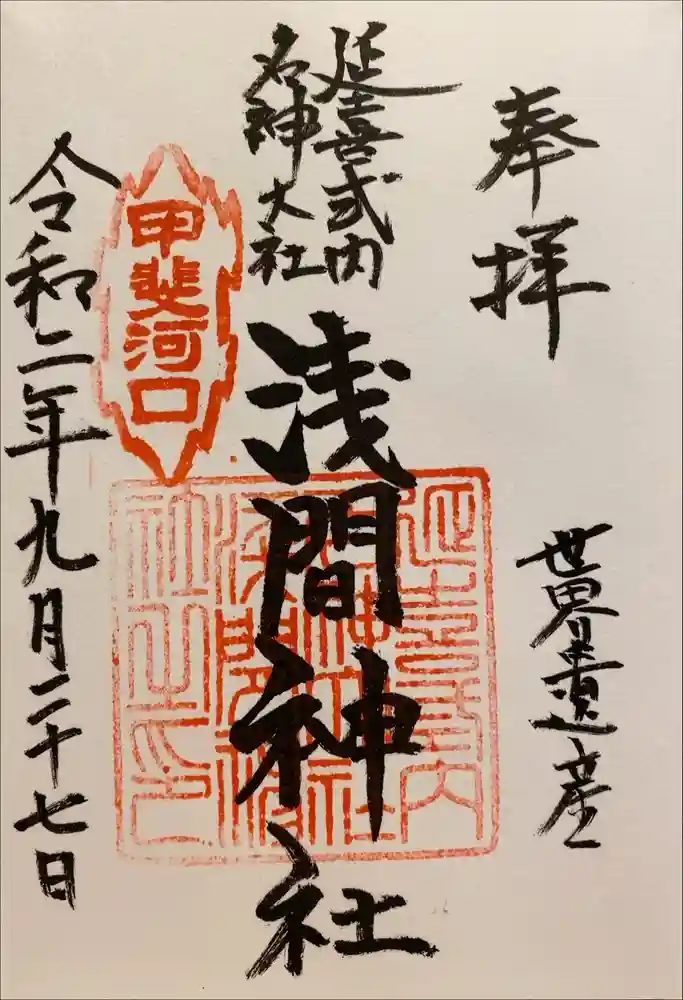 奉拝
世界遺産
延喜式内
名神大社
浅間神社
甲斐河口
延喜式内
名神大社
浅間神
社之印
令和二年九月二十七日